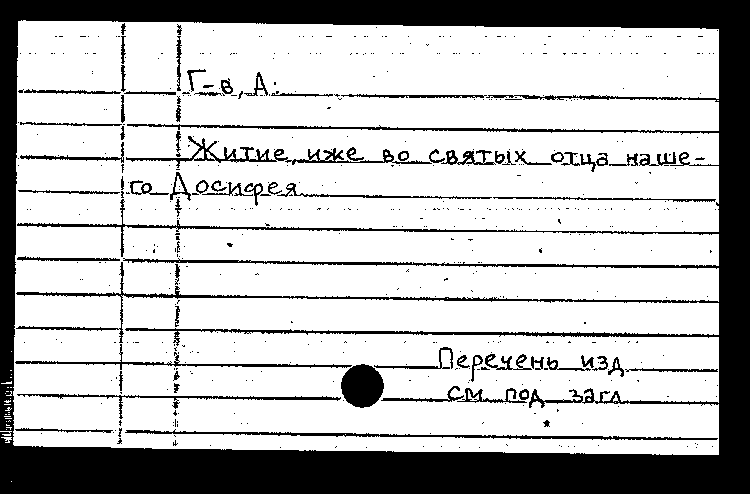 Г-в, А.
Житие, иже во святых отца наше-
го Досифея
Перечень изд.
см. под загл.